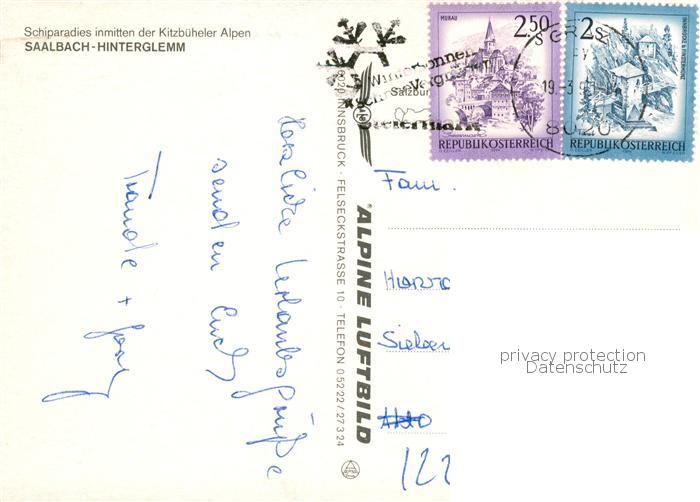 Schiparadies inmitten der Kitzbüheler Alpen
SAALBACH-HINTERGLEMM
Herzliche Urlaubsgrüße
senden Euch
Traudle +
6020 INNSBRUCK · FELSECKSTRASSE 10 · TELEFON 0 52 22 / 27 3 24
ALPINE LUFTBILD
MURAU
2.50 S
REPUBLIK ÖSTERREICH
2 S
REPUBLIK ÖSTERREICH
GRAZ
19.-3.
8020
Wintersonnen
Schneevergnügen
Steiermark
Salzbur
Fam.
122
privacy protection
Datenschutz